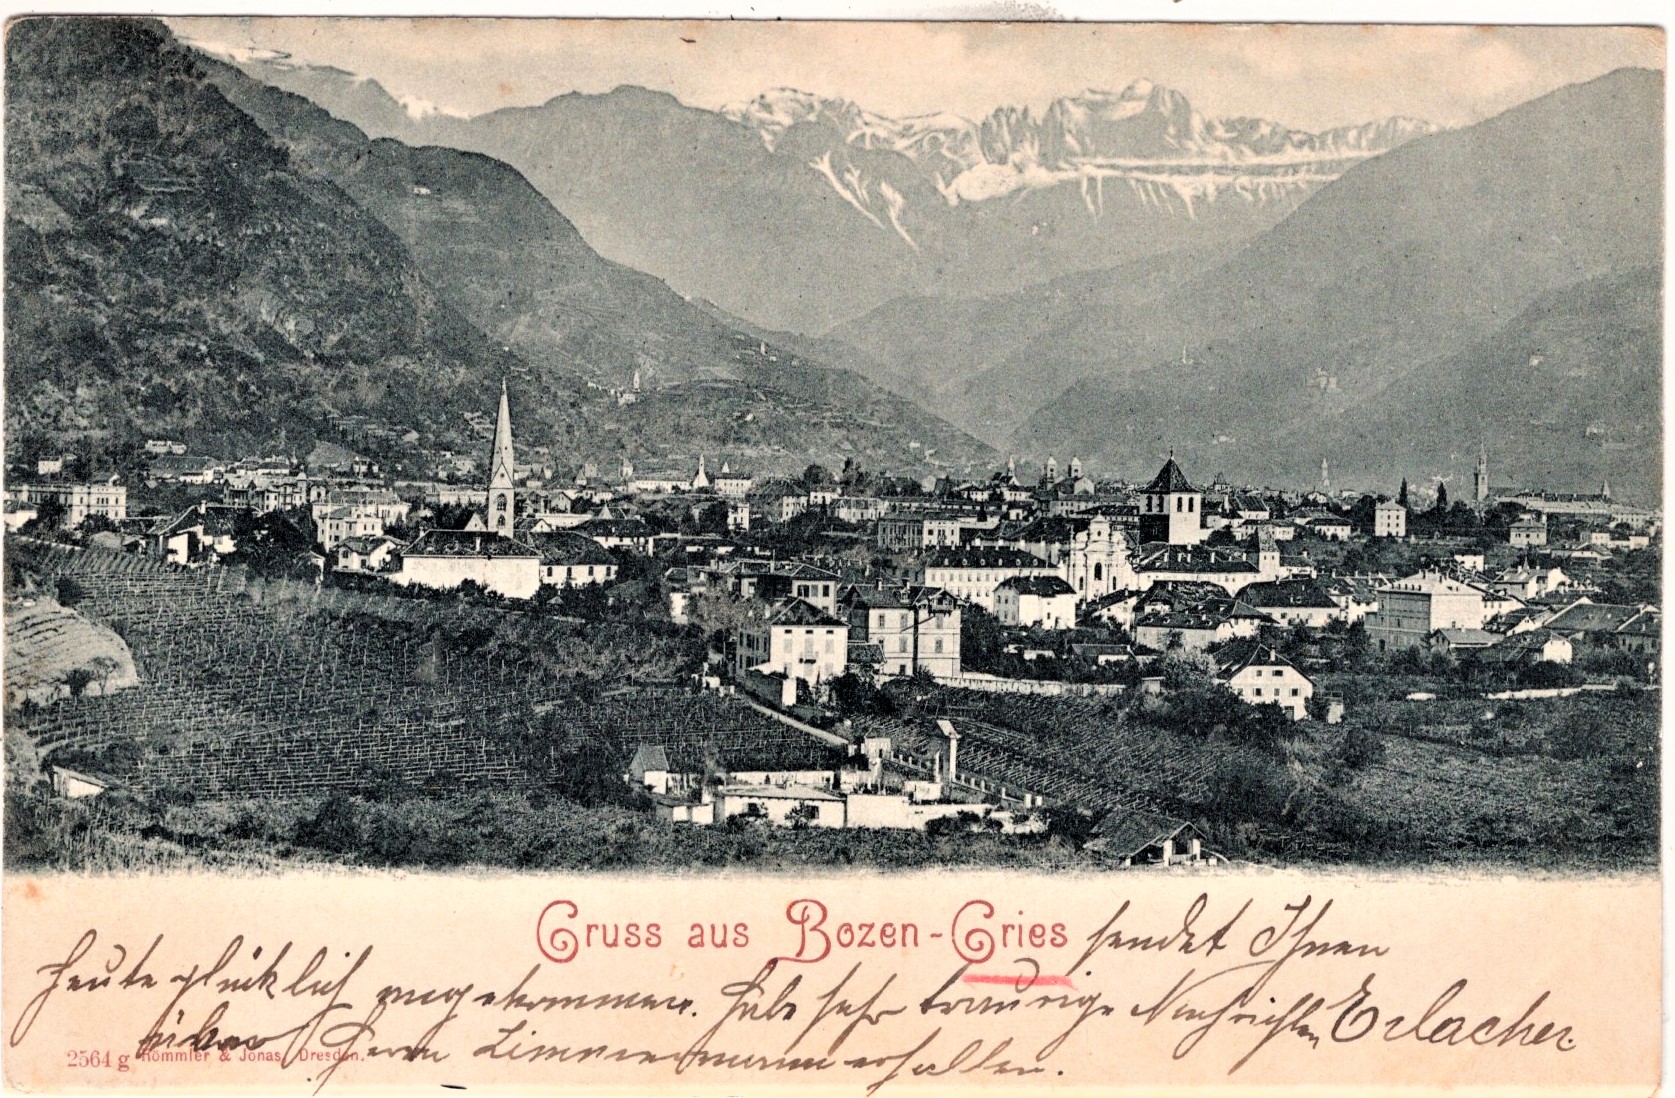 Gruss aus Bozen-Gries sendet Ihnen
heute glücklich angekommen. Habe sehr traurige Nachrichten Erlacher.
über Herrn Zimmermann erhalten.
2564 g Römmler & Jonas, Dresden.